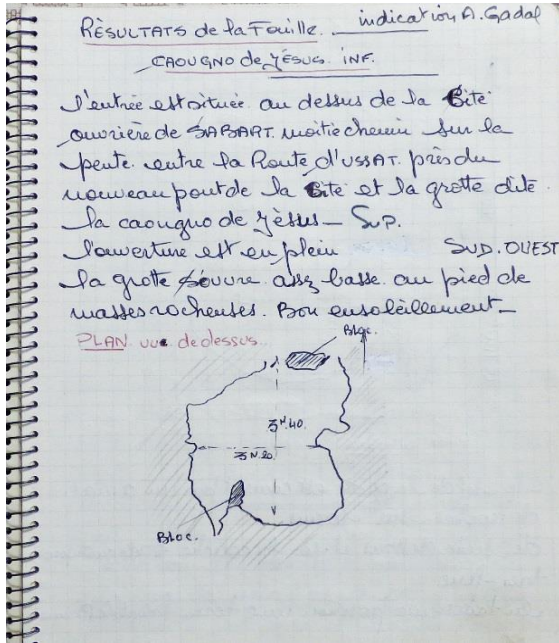 RÈSULTATS de la Fouille. indication A. Gadal
CAOUGNO de JÉSUS. INF.
l'entrée est située au dessus de la Cité
ouvrière de SABART. moitie chemin sur la
pente. entre la Route d'USSAT. près du
nouveau pont de la Cité et la grotte dite
la caougno de Jèsus_ SUP.
l'ouverture est en plein SUD.OUEST
la grotte s'ouvre assez basse au pied de
masses rocheuses. Bon ensolèillement_
PLAN vue de dessus.
Bloc.
3M.40.
3M.20.
Bloc.